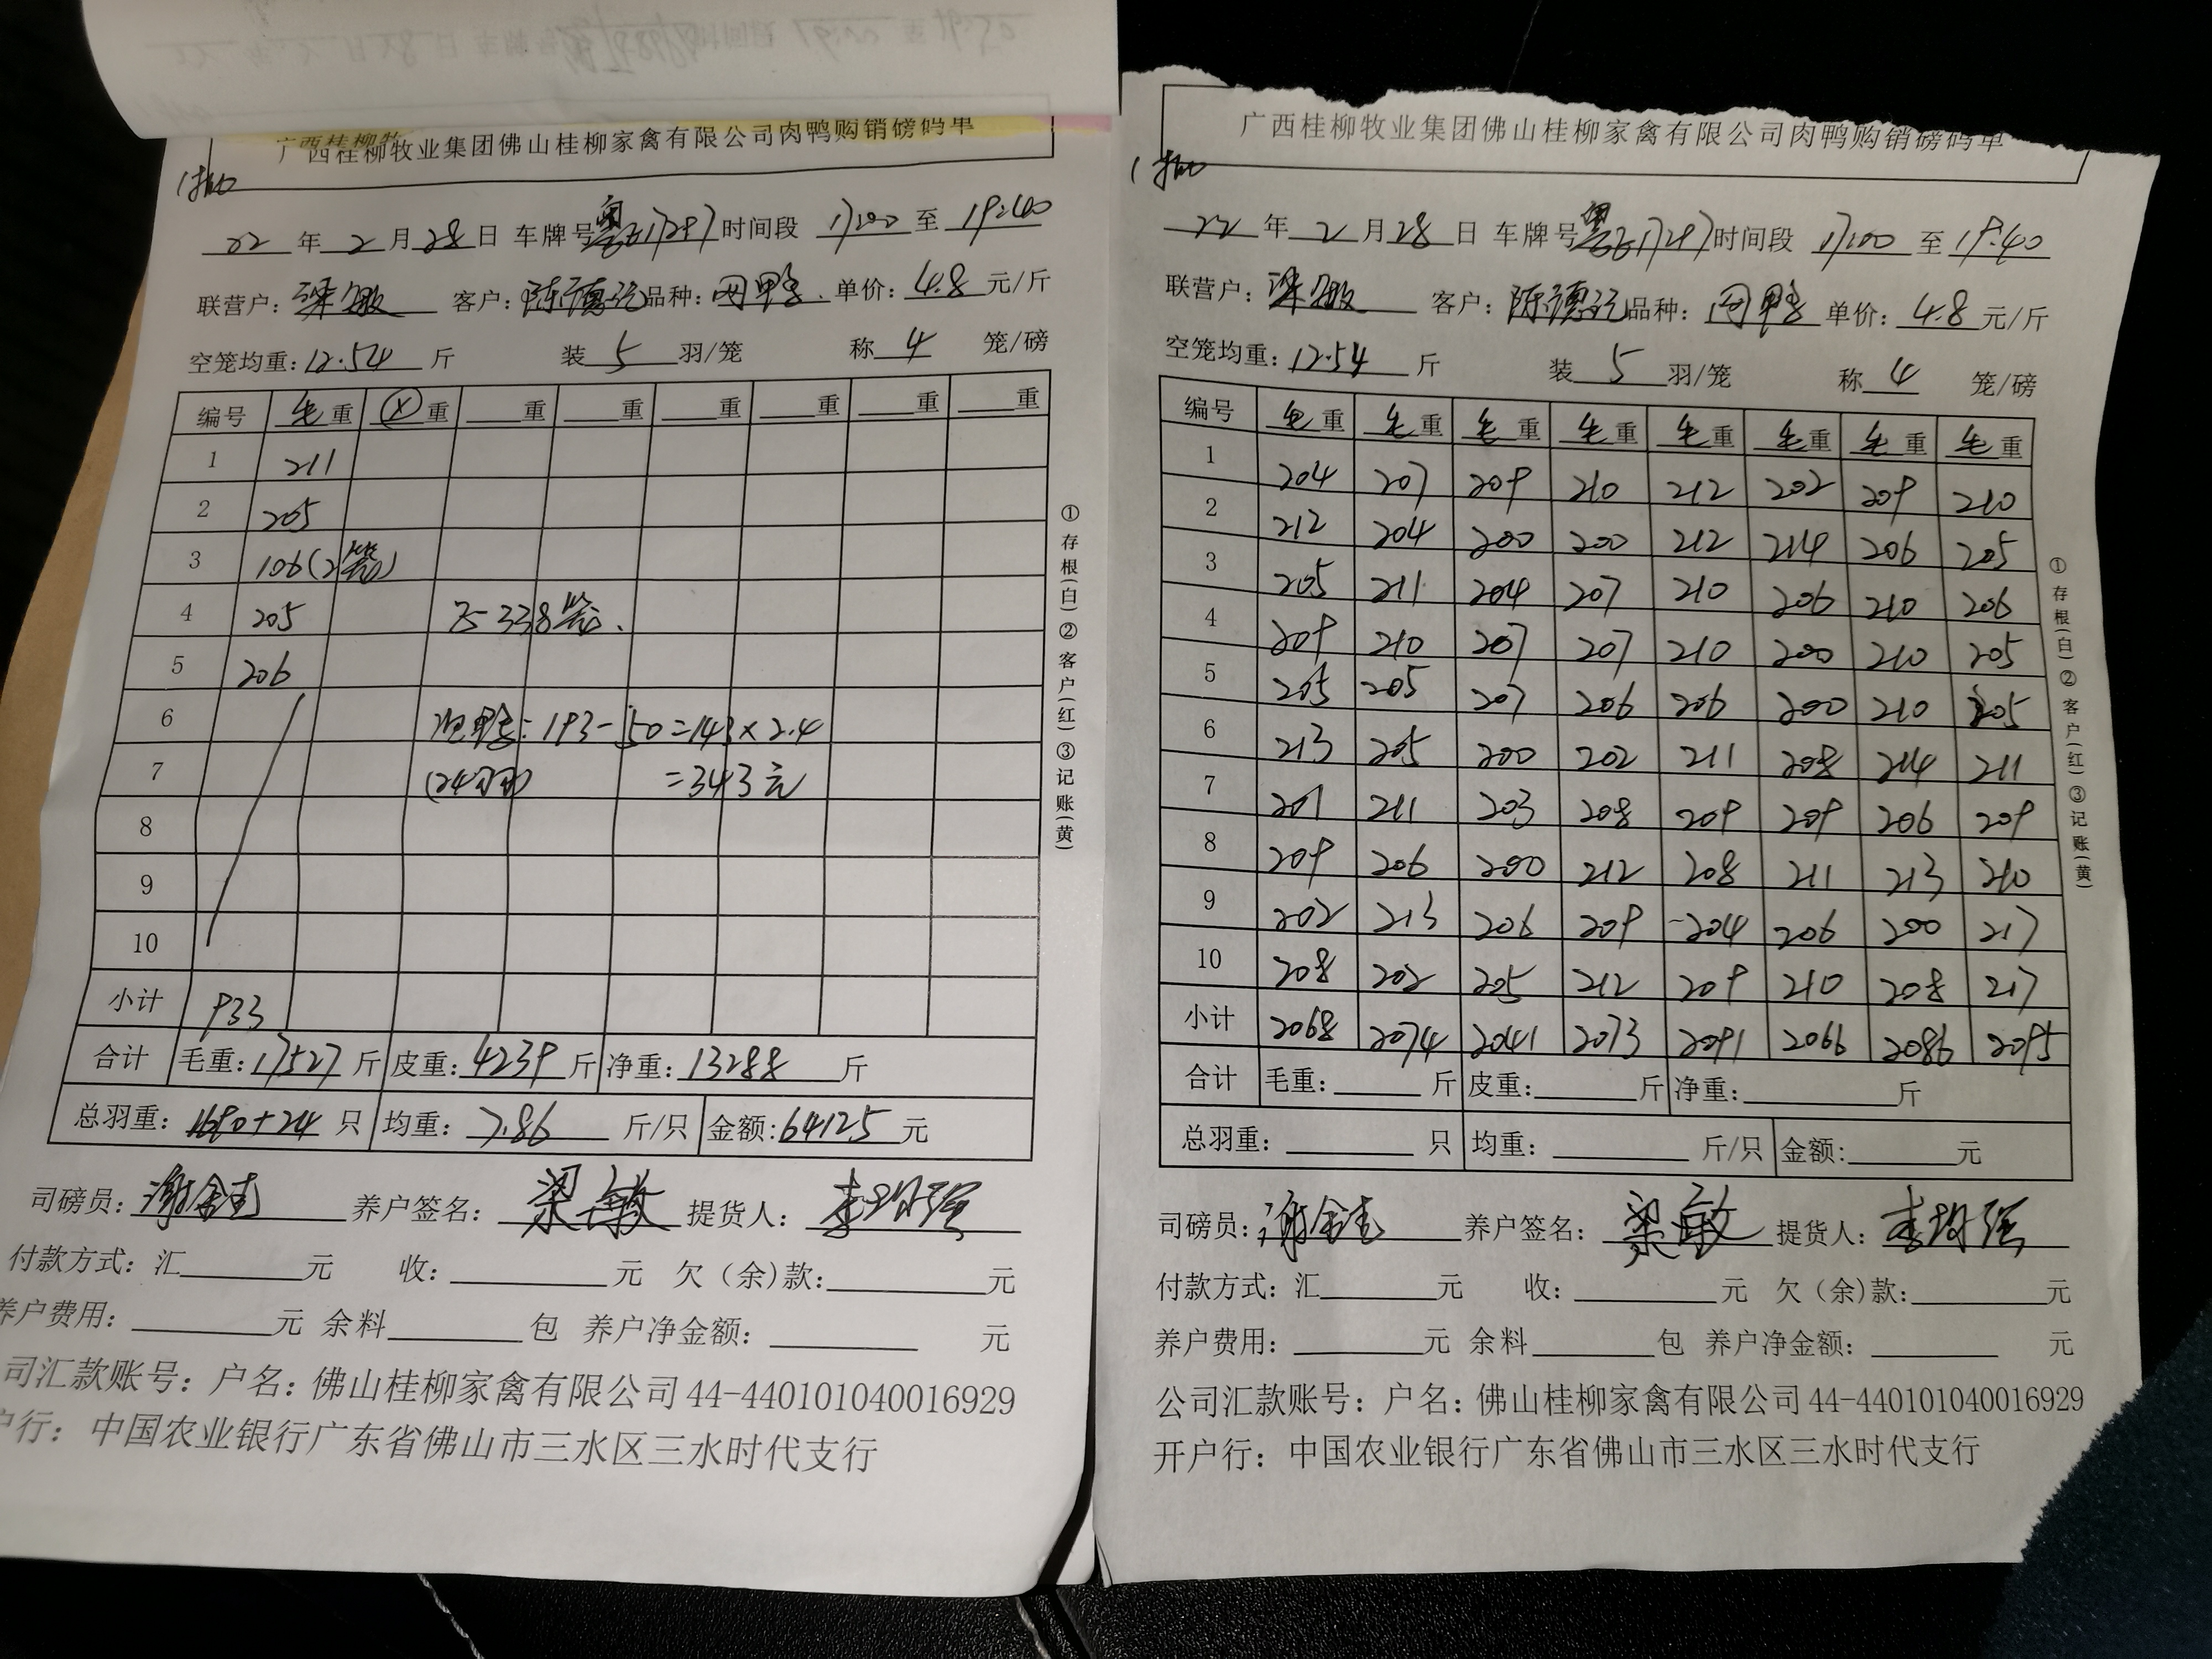 广西桂柳牧业集团佛山桂柳家禽有限公司肉鸭购销磅码单
22 年 2 月 28 日 车牌号 粤 时间段 17:00 至 19:40
联营户: 梁敏 客户: 陈德 品种: 单价: 4.8 元/斤
空笼均重: 12.54 斤 装 5 羽/笼 称 4 笼/磅
编号 毛重 重 重 重 重 重 重 重
1 211
2 205
3 106(2笼)
4 205 338笼
5 206
6 193-50=143×2.4
7 =343元
8
9
10
小计 933
合计 毛重: 17527 斤 皮重: 4239 斤 净重: 13288 斤
总羽重: 1690+24 只 均重: 7.86 斤/只 金额: 64125 元
司磅员: 养户签名: 梁敏 提货人:
付款方式: 汇 元 收: 元 欠(余)款: 元
养户费用: 元 余料 包 养户净金额: 元
司汇款账号: 户名: 佛山桂柳家禽有限公司 44-440101040016929
户行: 中国农业银行广东省佛山市三水区三水时代支行
①存根(白)②客户(红)③记账(黄)
广西桂柳牧业集团佛山桂柳家禽有限公司肉鸭购销磅码单
22 年 2 月 28 日 车牌号 粤 时间段 17:00 至 19:40
联营户: 梁敏 客户: 陈德 品种: 单价: 4.8 元/斤
空笼均重: 12.54 斤 装 5 羽/笼 称 4 笼/磅
编号 毛重 毛重 毛重 毛重 毛重 毛重 毛重 毛重
1 204 207 209 210 212 202 209 210
2 212 204 200 200 212 214 206 205
3 205 211 204 207 210 206 210 206
4 209 210 207 207 210 200 210 205
5 205 205 207 206 206 200 210 205
6 213 205 200 202 211 208 214 211
7 201 211 203 208 209 209 206 209
8 209 206 200 212 208 211 213 210
9 202 213 206 209 204 206 200 217
10 208 202 205 212 209 210 208 217
小计 2068 2074 2041 2073 2091 2066 2086 2095
合计 毛重: 斤 皮重: 斤 净重: 斤
总羽重: 只 均重: 斤/只 金额: 元
司磅员: 养户签名: 梁敏 提货人:
付款方式: 汇 元 收: 元 欠(余)款: 元
养户费用: 元 余料 包 养户净金额: 元
公司汇款账号: 户名: 佛山桂柳家禽有限公司 44-440101040016929
开户行: 中国农业银行广东省佛山市三水区三水时代支行
①存根(白)②客户(红)③记账(黄)